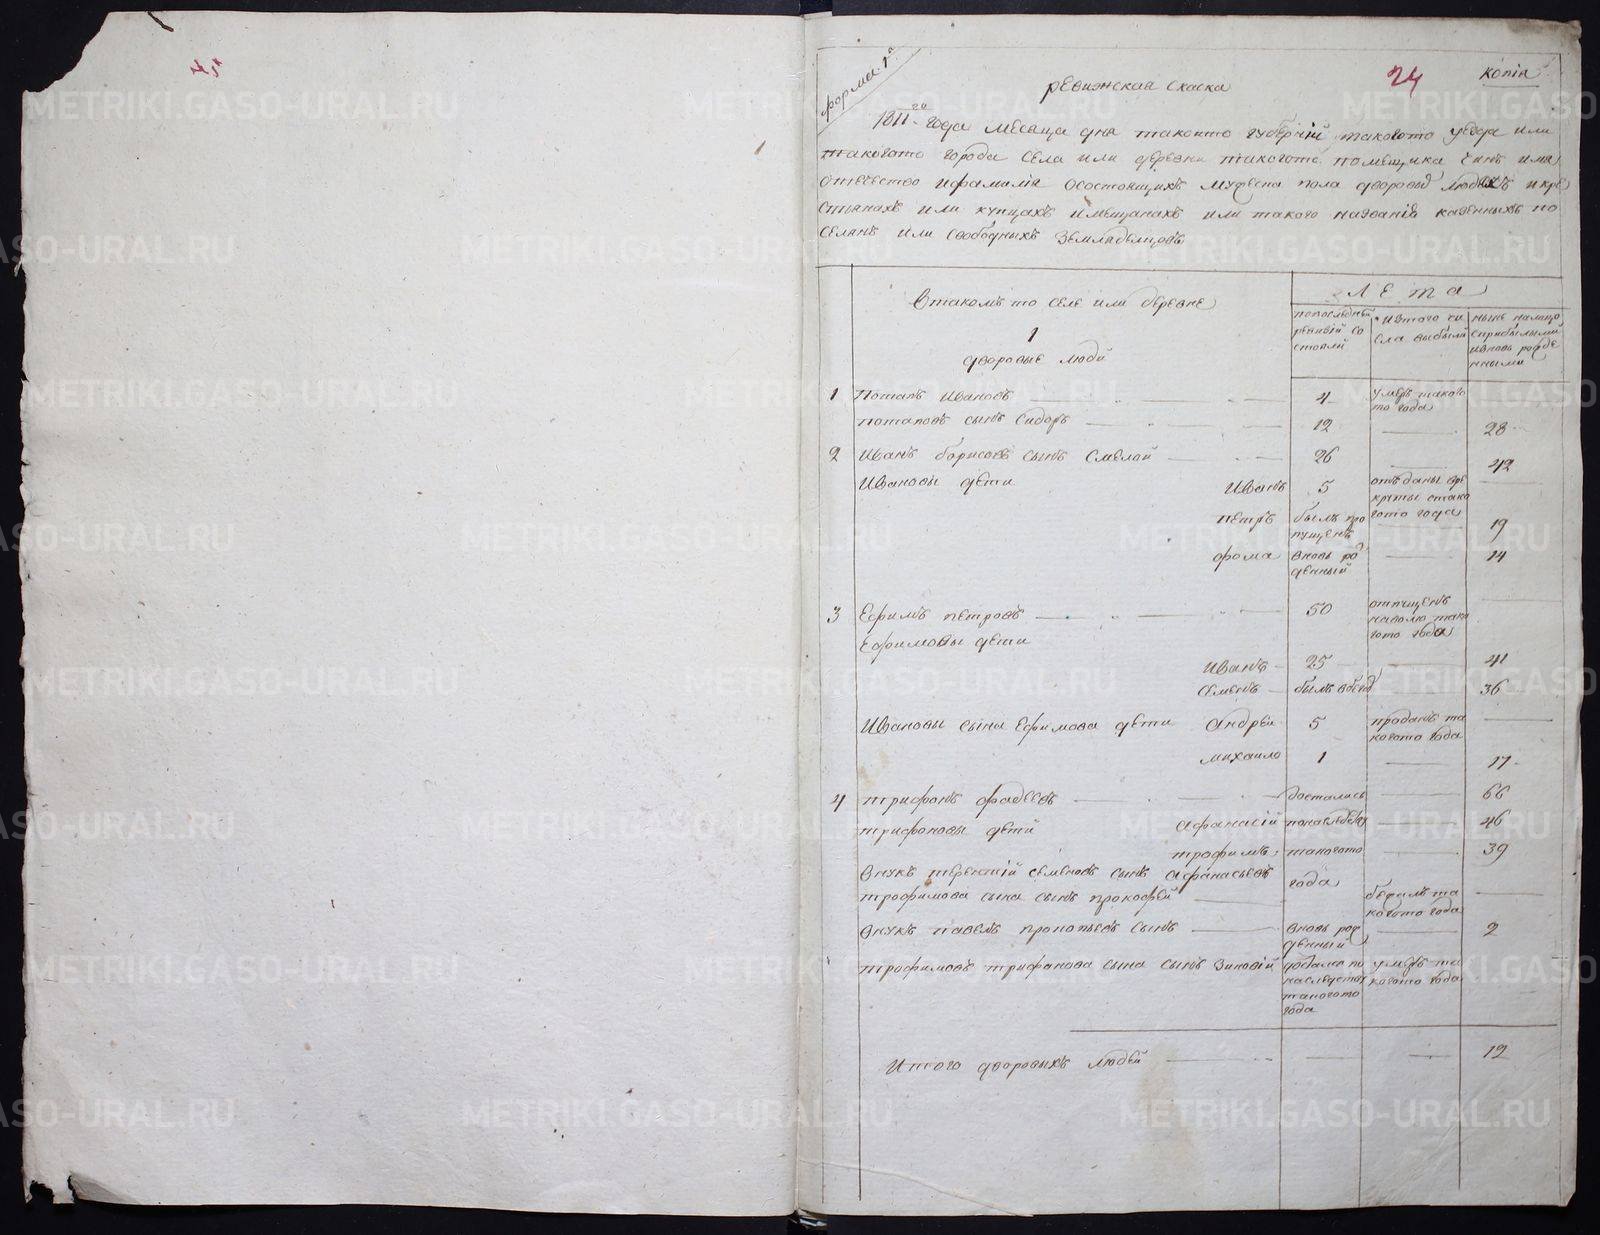 форма 1я
24
копiя
ревижская скаска
1811го года месаца дня такогото губернiй такогото уезда или
такогото города села или деревни такогото помещика чинъ имя
отчество ифамилiя осостоящихъ мужеска пола дворовыхъ людехъ икре
стьянахъ или купцахъ имещанахъ или такого названiя казенныхъ по
селянъ или свободныхъ земледельцовъ
Втакомъто селе или деревне
Лета
попоследней ревизiй со стояли
изтого чи сла выбыли
ныне налицо сприбылыми ивновь рожде нными
1
дворовые люди
1 Потапъ Ивановъ 4 умеръ такого то года
потаповъ сынъ Сидоръ 12 28
2 Иванъ борисовъ сынъ Смелой 26 42
Ивановы дети Иванъ 5 отъданы вре круты стако гото года
петръ былъ про пущенъ 19
фома вновь ро жденный 14
3 Ефимъ петровъ 50 отпущенъ наволю тако гото года
Ефимовы дети
Иванъ 25 41
Семенъ былъ вбегах 36
Ивановы сына Ефимова дети Андрей 5 проданъ та когото года
михаило 1 17
4 трифонъ фадеевъ достались 66
трифоновы дети Афанасiй понаследству 46
трофимъ такогото 39
Внукъ терентiй семеновъ сынъ Афанасьевъ года
трофимова сына сынъ прокофей бежалъ та когото года
Внукъ павелъ прокопьевъ сынъ вновь рож денный 2
трофимовъ трифонова сына сынъ Зиновiй досталса по наследству такогото года умеръ та когото года
Итого дворовыхъ людей 12
METRIKI.GASO-URAL.RU